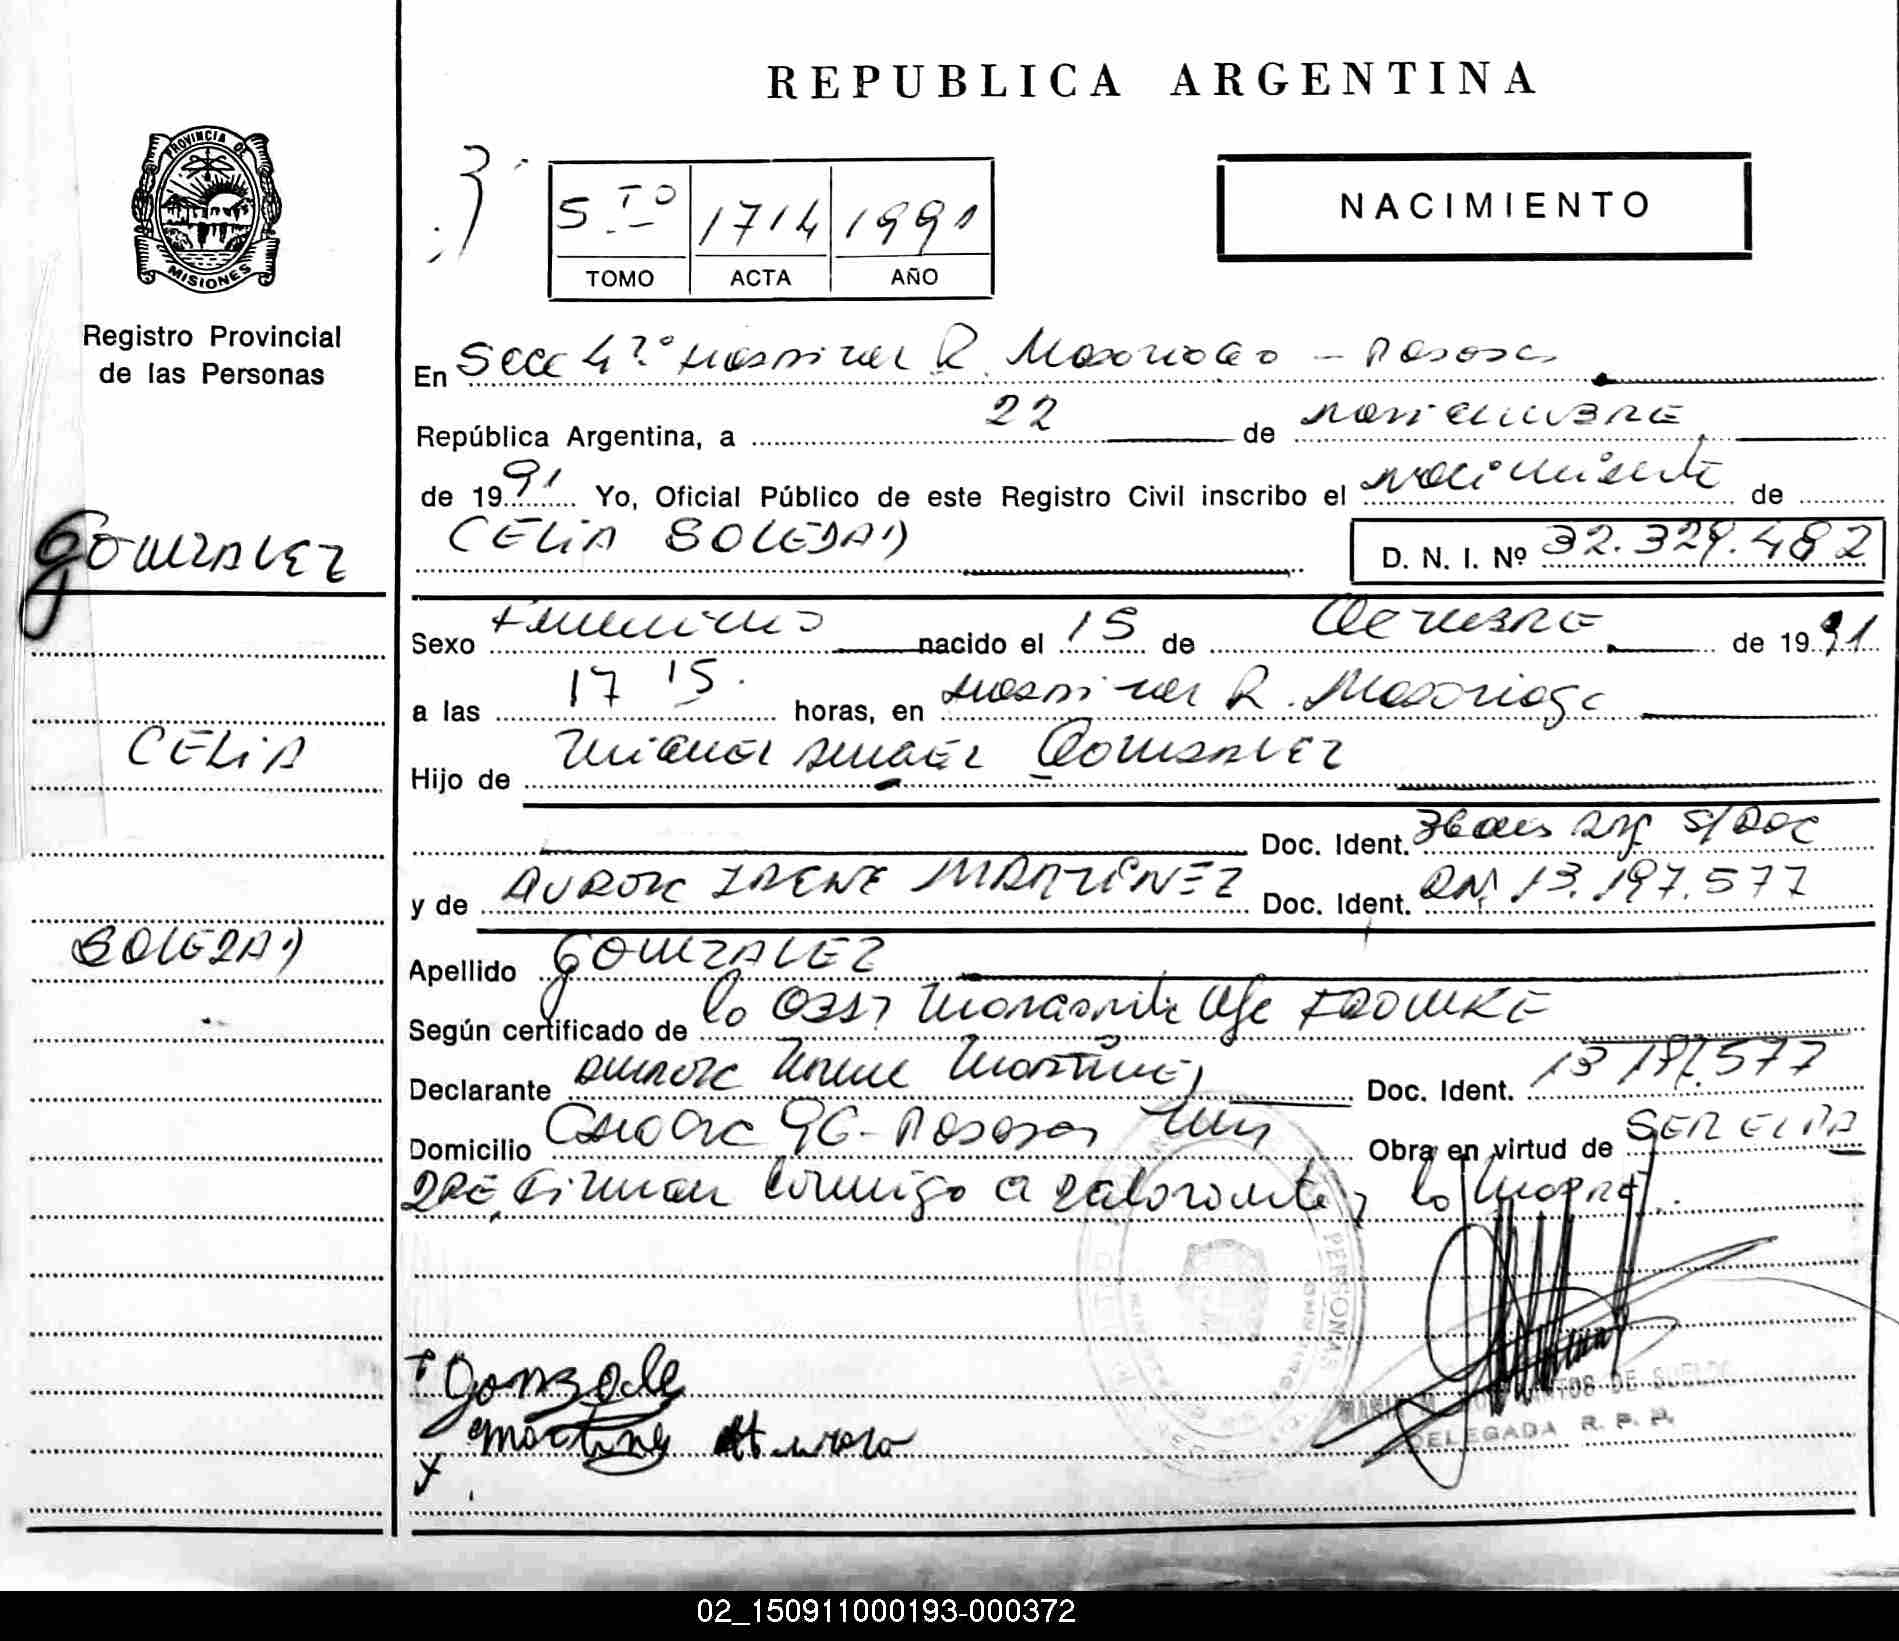 REPUBLICA ARGENTINA
PROVINCIA DE
MISIONES
Registro Provincial
de las Personas
5 TO 1714 1991
TOMO ACTA AÑO
NACIMIENTO
En Secc 4ª Hospital R. Madariaga - Posadas
República Argentina, a 22 de noviembre
de 1991 Yo, Oficial Público de este Registro Civil inscribo el nacimiento de
CELIA SOLEDAD
D. N. I. Nº 32.329.482
GONZALEZ
CELIA
SOLEDAD
Sexo Femenino nacido el 15 de Octubre de 1991
a las 17 15. horas, en Hospital R. Madariaga
Hijo de Miguel Angel Gonzalez
Doc. Ident. 36 años arg S/Doc
y de AURORA IRENE MARTINEZ Doc. Ident. 13.197.577
Apellido GONZALEZ
Según certificado de la Obst Margarita
Declarante Aurora Irene Martinez Doc. Ident. 13 197.577
Domicilio 96 - Posadas Mis Obra en virtud de SER EL PA
DRE, Firman conmigo el declarante y la madre.
Gonzale
Martinez Aurora
PERSONAS
DE SUELDO
DELEGADA R. P. P.
02_150911000193-000372